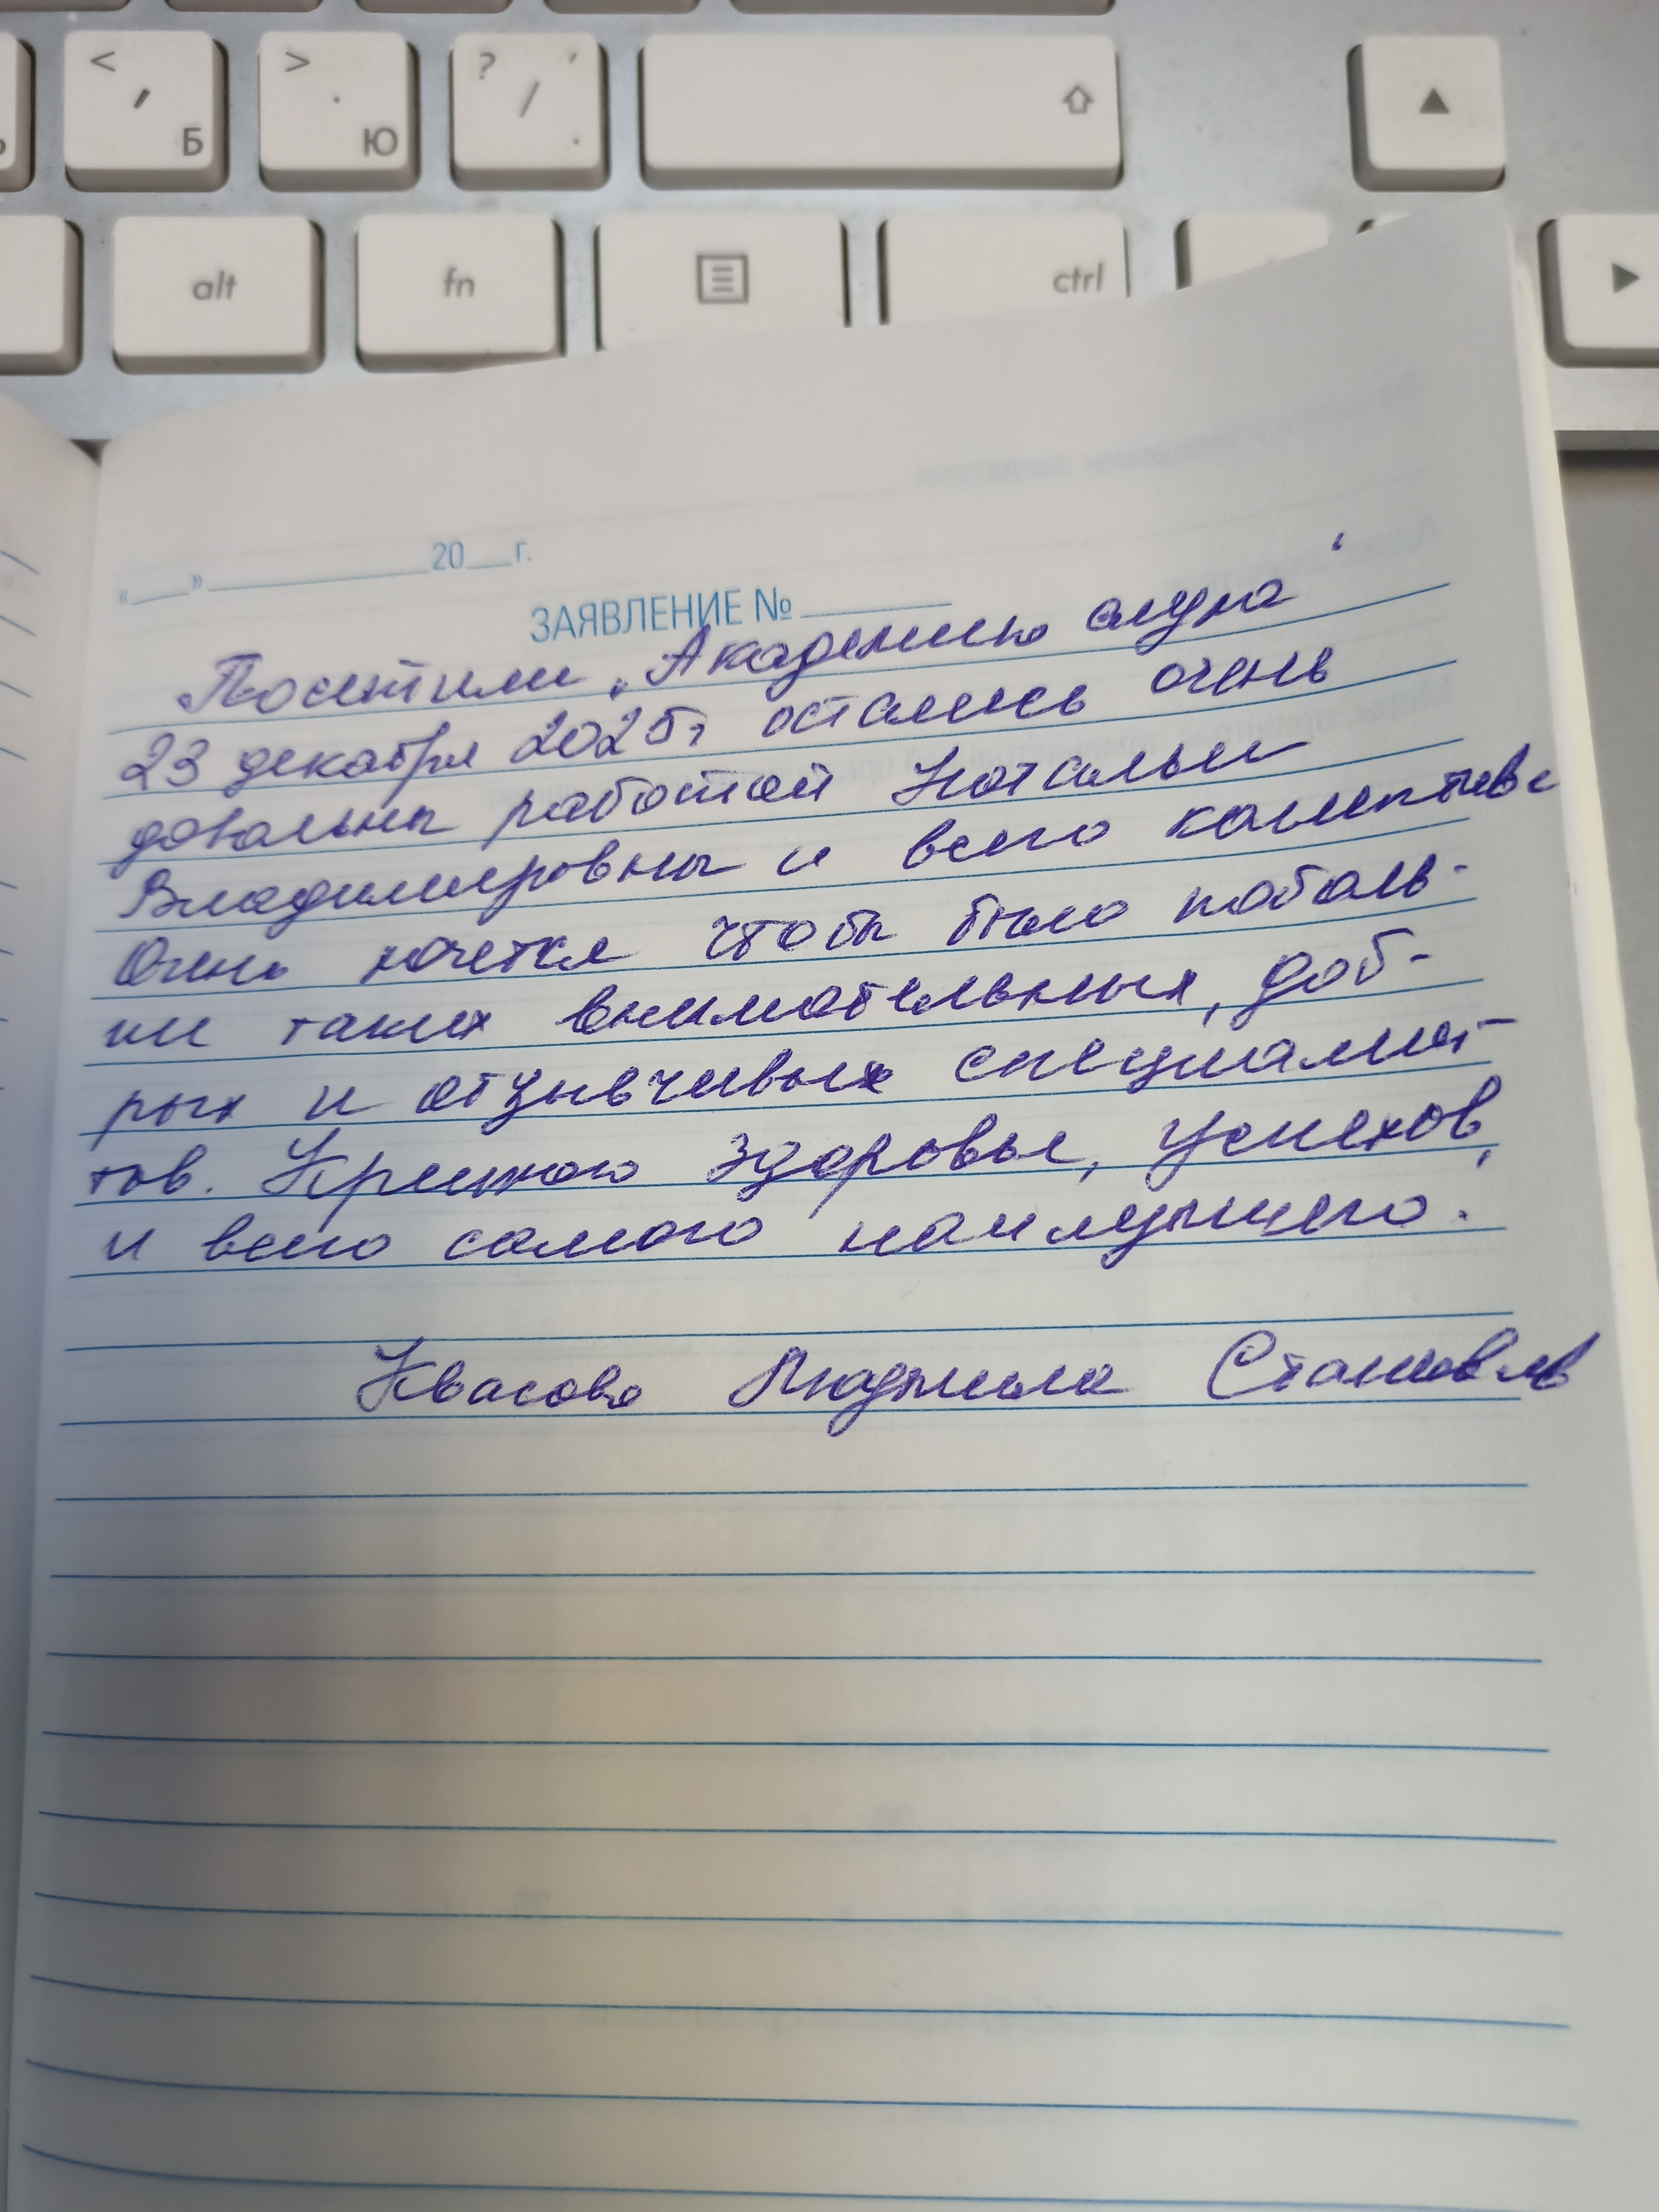 <
,
Б
>
.
Ю
?
/
.
alt
fn
ctrl
«___»____________20__г.
ЗАЯВЛЕНИЕ № ______
Посетили „Академию слуха“
23 декабря 2025г остались очень
довольны работой Натальи
Владимировны и всего коллектива
Очень хочется чтобы было поболь-
ши таких внимательных, доб-
рых и отзывчивых специалис-
тов. Крепкого здоровья, успехов,
и всего самого наилучшего.
Квасова Людмила Станиславов